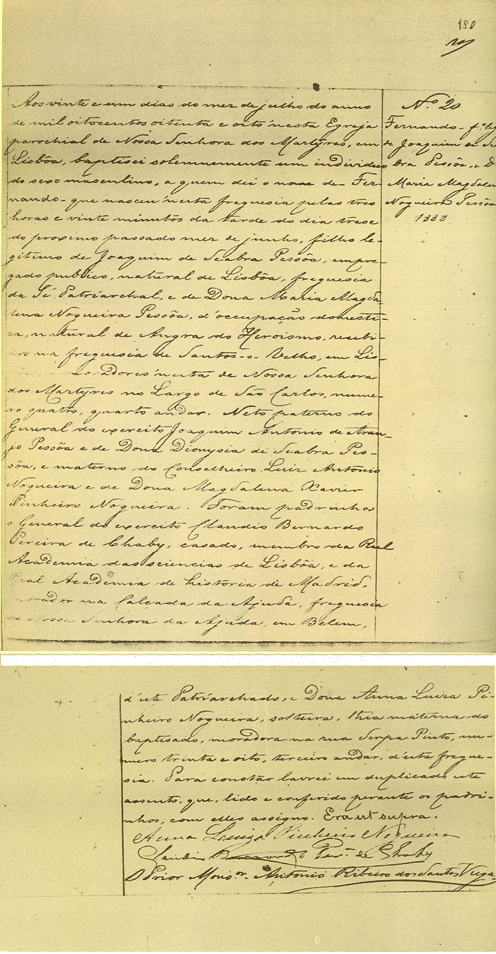 180
Nº 20
Fernando, fº leg.
de Joaquim de Sea
bra Pessôa, e D.
Maria Magdalena
Nogueira Pessôa
1888
Aos vinte e um dias do mez de julho do anno
de mil oitocentos oitenta e oito n'esta Egreja
parochial de Nossa Senhora dos Martyres, em
Lisbôa, baptisei solemnemente um individuo
do sexo masculino, a quem dei o nome de Fer
nando, que nasceu n'esta freguesia pelas tres
horas e vinte minutos da tarde do dia treze
do proximo passado mez de junho, filho le
gitimo de Joaquim de Seabra Pessôa, empre
gado publico, natural de Lisbôa, freguesia
da Sé Patriarchal, e de Dona Maria Magda
lena Nogueira Pessôa, d'occupação domesti
ca, natural de Angra do Heroismo, recebi
dos na freguesia de Santos-o-Velho, em Lis
dores n'esta de Nossa Senhora
dos Martyres no Largo de São Carlos, nume
ro quatro, quarto andar. Neto paterno do
General do exercito Joaquim Antonio de Arau
jo Pessôa e de Dona Dionysia de Seabra Pes
sôa, e materno do Conselheiro Luiz Antonio
Nogueira e de Dona Magdalena Xavier
Pinheiro Nogueira. Foram padrinhos
o General do exercito Claudio Bernardo
Pereira de Chaby, casado, membro da Real
Academia das sciencias de Lisbôa, e da
Real Academia de historia de Madrid,
morador na Calçada da Ajuda, freguesia
de Nossa Senhora da Ajuda, em Belem,
d'este Patriarchado, e Dona Anna Luiza Pi
nheiro Nogueira, solteira, thia materna do
baptisado, moradora na rua Serpa Pinto, nu
mero trinta e oito, terceiro andar, d'esta fregue
sia. Para constar lavrei em duplicado este
assento, que, lido e conferido perante os padri
nhos, com elles assigno. Era ut supra.
Anna Luiza Pinheiro Nogueira
Claudio Bernardo Perª de Chaby
O Prior Monsr. Antonio Ribeiro dos Santos Veiga